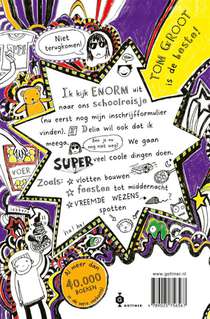 Niet
terugkomen!
TOM GROOT
is de beste!
Ik kijk ENORM uit
naar ons schoolreisje
(nu eerst nog mijn inschrijfformulier
vinden). Delia wil ook dat ik
meega. We gaan
SUPER veel coole dingen doen.
Zoals: ★ vlotten bouwen
★ feesten tot middernacht
★ VREEMDE WEZENS
spotten
VOER
Al meer dan
40.000
BOEKEN
www.gottmer.nl
GOTTMER